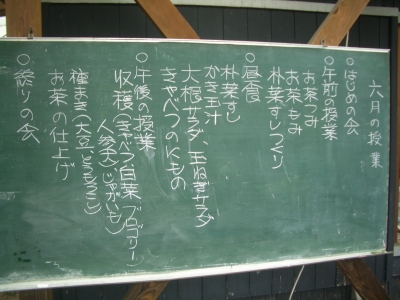 六月の授業
○はじめの会
○午前の授業
お茶つみ
お茶もみ
朴葉すしづくり
○昼食
朴葉すし
かき玉汁
大根サラダ、玉ねぎサラダ
きゃべつのにもの
○午後の授業
収穫(きゃべつ、白菜、ブロッコリー
人参、大、じゃがいも)
種まき(大豆、とうもろこし)
お茶の仕上げ
○終りの会